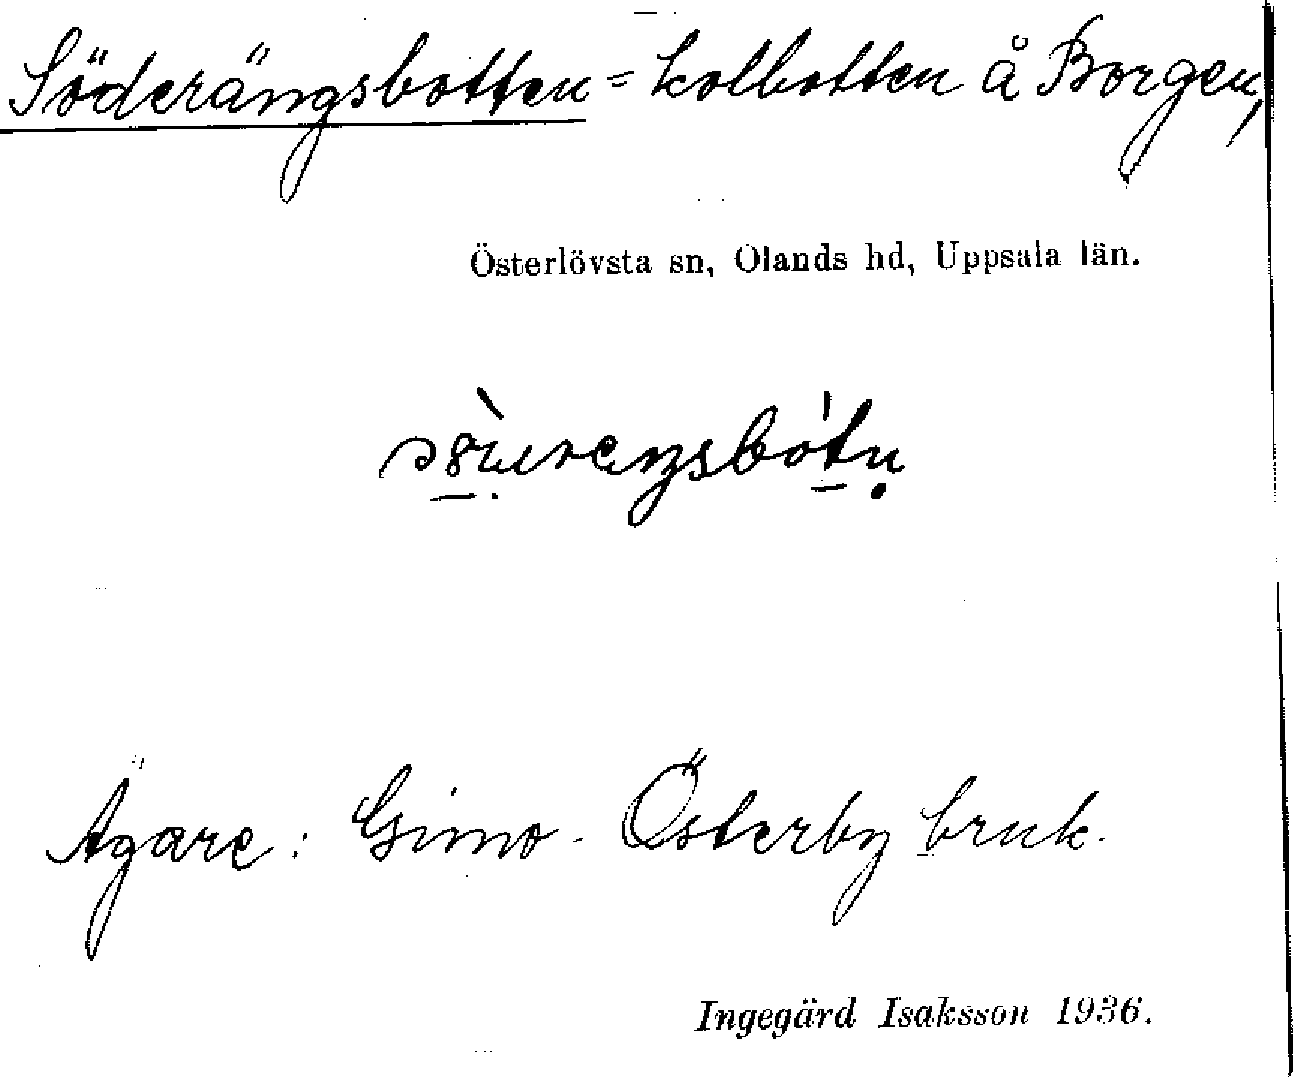 Söderängsbotten = kolbotten å Borgen,
Österlövsta sn, Olands hd, Uppsala län.
Ägare: Gimo - Österby bruk.
Ingegärd Isaksson 1936.